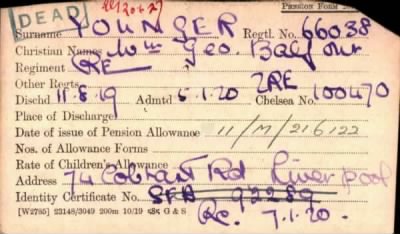 DEAD
PENSION FORM
Surname YOUNGER Regtl. No. 66038
Christian Names Wm Geo. Balfour
Regiment RE
Other Regts. 2RE
Dischd 11.8.19 Admtd 5.1.20 Chelsea No. 100470
Place of Discharge
Date of issue of Pension Allowance 11/M/216122
Nos. of Allowance Forms
Rate of Children's Allowance
Address 74 Rd Liverpool
Identity Certificate No. SFB 92289
[W2785] 23148/3049 200m 10/19 G & S Rc. 7.1.20.